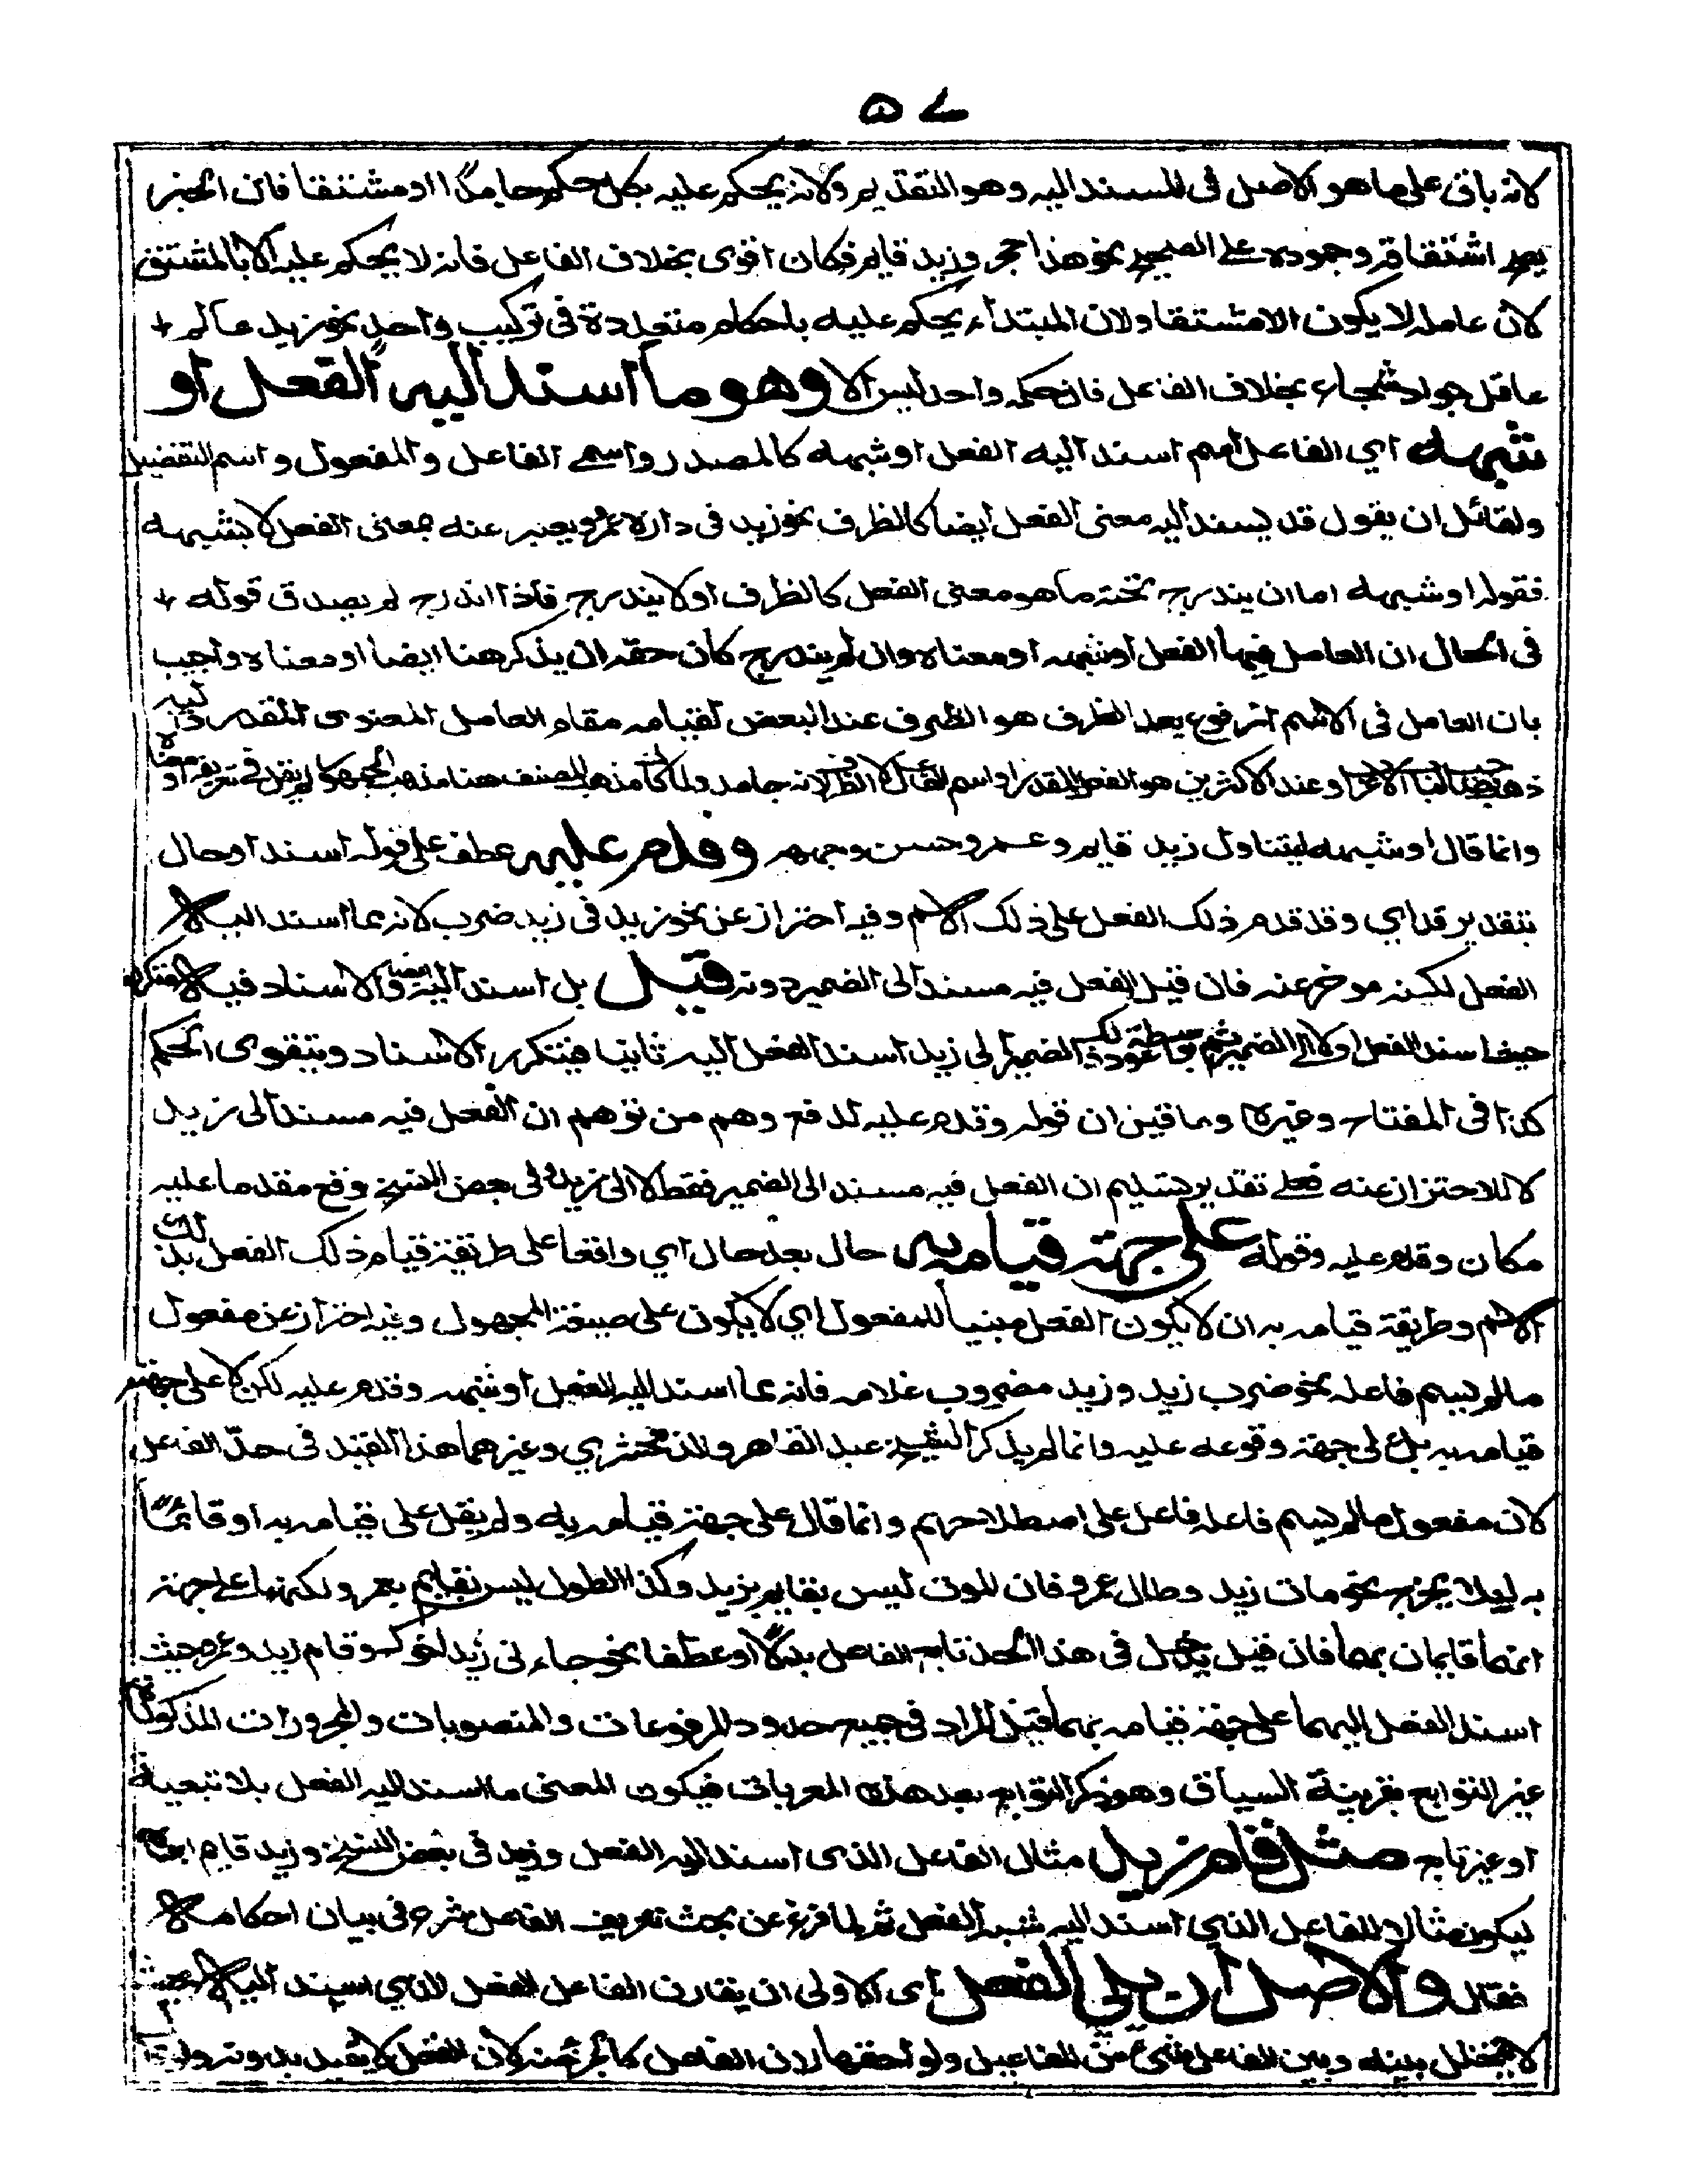 لانه باق على ما هو الاصل فى المسند اليه وهو التقديم ولانه يحكم عليه بكل حكم جامدًا او مشتقا فان الخبر
يصح اشتقاقه وجموده على الصحيح نحو هذا حجر وزيد قايم فكان اقوى بخلاف الفاعل فانه لا يحكم عليه الا بالمشتق
لان عامله لا يكون الا مشتقا ولان المبتداء يحكم عليه باحكام متعددة فى تركيب واحد نحو زيد عالم
عاقل جواد شجاء بخلاف الفاعل فان حكمه واحد ليس الا وهو ما اسند اليه الفعل او
شبهه اى الفاعل اسم اسند اليه الفعل او شبهه كالمصدر واسمے الفاعل والمفعول واسم التفضيل
ولقائل ان يقول قد يسند اليه معنى الفعل ايضا كالظرف نحو زيد فى داره عمرو ويعبر عنه بمعنى الفعل لا بشبهه
فقوله او شبهه اما ان يندرج تحته ما هو معنى الفعل كالظرف او لا يندرج فاذا اندرج لم يصدق قوله
فى الحال ان العامل فيها الفعل او شبهه او معناه وان لم يندرج كان حقه ان يذكر هنا ايضا او معناه واجيب
بان العامل فى الاسم المرفوع بعد الظرف هو الظرف عند البعض لقيامه مقام العامل المعنوى المقدر واليه
ذهب صاحب اللباب وعند الاكثرين هو الفعل المقدر او اسم الفاعل لا الظرف لانه جامد ولما كان مذهب المصنف هنا مذهب الجمهور لم يقل فى تعريفه او معناه
وانما قال او شبهه ليتناول زيد قايم وعمرو حسن وجهه وقدم عليه عطف على قوله اسند او حال
بتقدير قد اي وقد قدم ذلك الفعل على ذلك الاسم وفيه احتراز عن نحو زيد فى زيد ضرب لانه مما اسند اليه
الفعل لكنه موخر عنه فان قيل الفعل فيه مسند الى الضمير دونه قيل بل اسند اليه ايضا والاسناد فيه متكرر
حيث اسند الفعل اولا الى الضمير ثم بواسطة عود ذلك الضمير الى زيد اسند الفعل اليه ثانيا فيتكرر الاسناد ويتقوى الحكم
كذا فى المفتاح وغيره وما قيل ان قوله وقدم عليه لدفع وهم من توهم ان الفعل فيه مسند الى زيد
لا للاحتراز عنه فعلے تقدير تسليم ان الفعل فيه مسند الى الضمير فقط لا الى زيد وفى بعض النسخ وقع مقدما عليه
مكان وقدم عليه وقوله على جهة قيامه به حال بعد حال اي واقعا على طريقة قيام ذلك الفعل بذلك
الاسم وطريقة قيامه به ان لا يكون الفعل مبنيا للمفعول اي لا يكون على صيغة المجهول وفيه احتراز عن مفعول
ما لم يسم فاعله نحو ضرب زيد وزيد مضروب غلامه فانه مما اسند اليه الفعل او شبهه وقدم عليه لكن لا على جهة
قيامه به بل على جهة وقوعه عليه وانما لم يذكر الشيخ عبد القاهر والزمخشري وغيرهما هذا القيد فى حدّ الفاعل
لان مفعول ما لم يسم فاعله فاعل على اصطلاحهم وانما قال على جهة قيامه به ولم يقل على قيامه به او قائمًا
به ليلا يخرج نحو مات زيد وطال عمرو فان الموت ليس بقايم بزيد وكذا الطول ليس بقايم بعمرو ولكنهما على جهة
انهما قايمان بهما فان قيل يدخل فى هذا الحد تابع الفاعل بدلاً او عطفا نحو جاءنى زيد اخوك وقام زيد وعمرو حيث
اسند الفعل اليهما على جهة قيامه بهما قيل المراد فى جميع حدود المرفوعات والمنصوبات والمجرورات المذكورات
غير التوابع بقرينة السياق وهو ذكر التوابع بعد هذه المعربات فيكون المعنى ما اسند اليه الفعل بلا تبعية
او غير تابع مثل قام زيد مثال الفاعل الذى اسند اليه الفعل وزيد فى بعض النسخ وزيد قايم ابوه
ليكون مثالا للفاعل الذي اسند اليه شبه الفعل ثم لما فرغ عن بحث تعريف الفاعل شرع فى بيان احكامه
فقال والاصل ان يلى الفعل اى الاولى ان يقارن الفاعل الفعل الذي اسند اليه بحيث
لا يتخلل بينه وبين الفاعل شىء من المفاعيل ولو لحقها لان الفاعل كالجزء منه لان الفعل لا يفيد بدونه